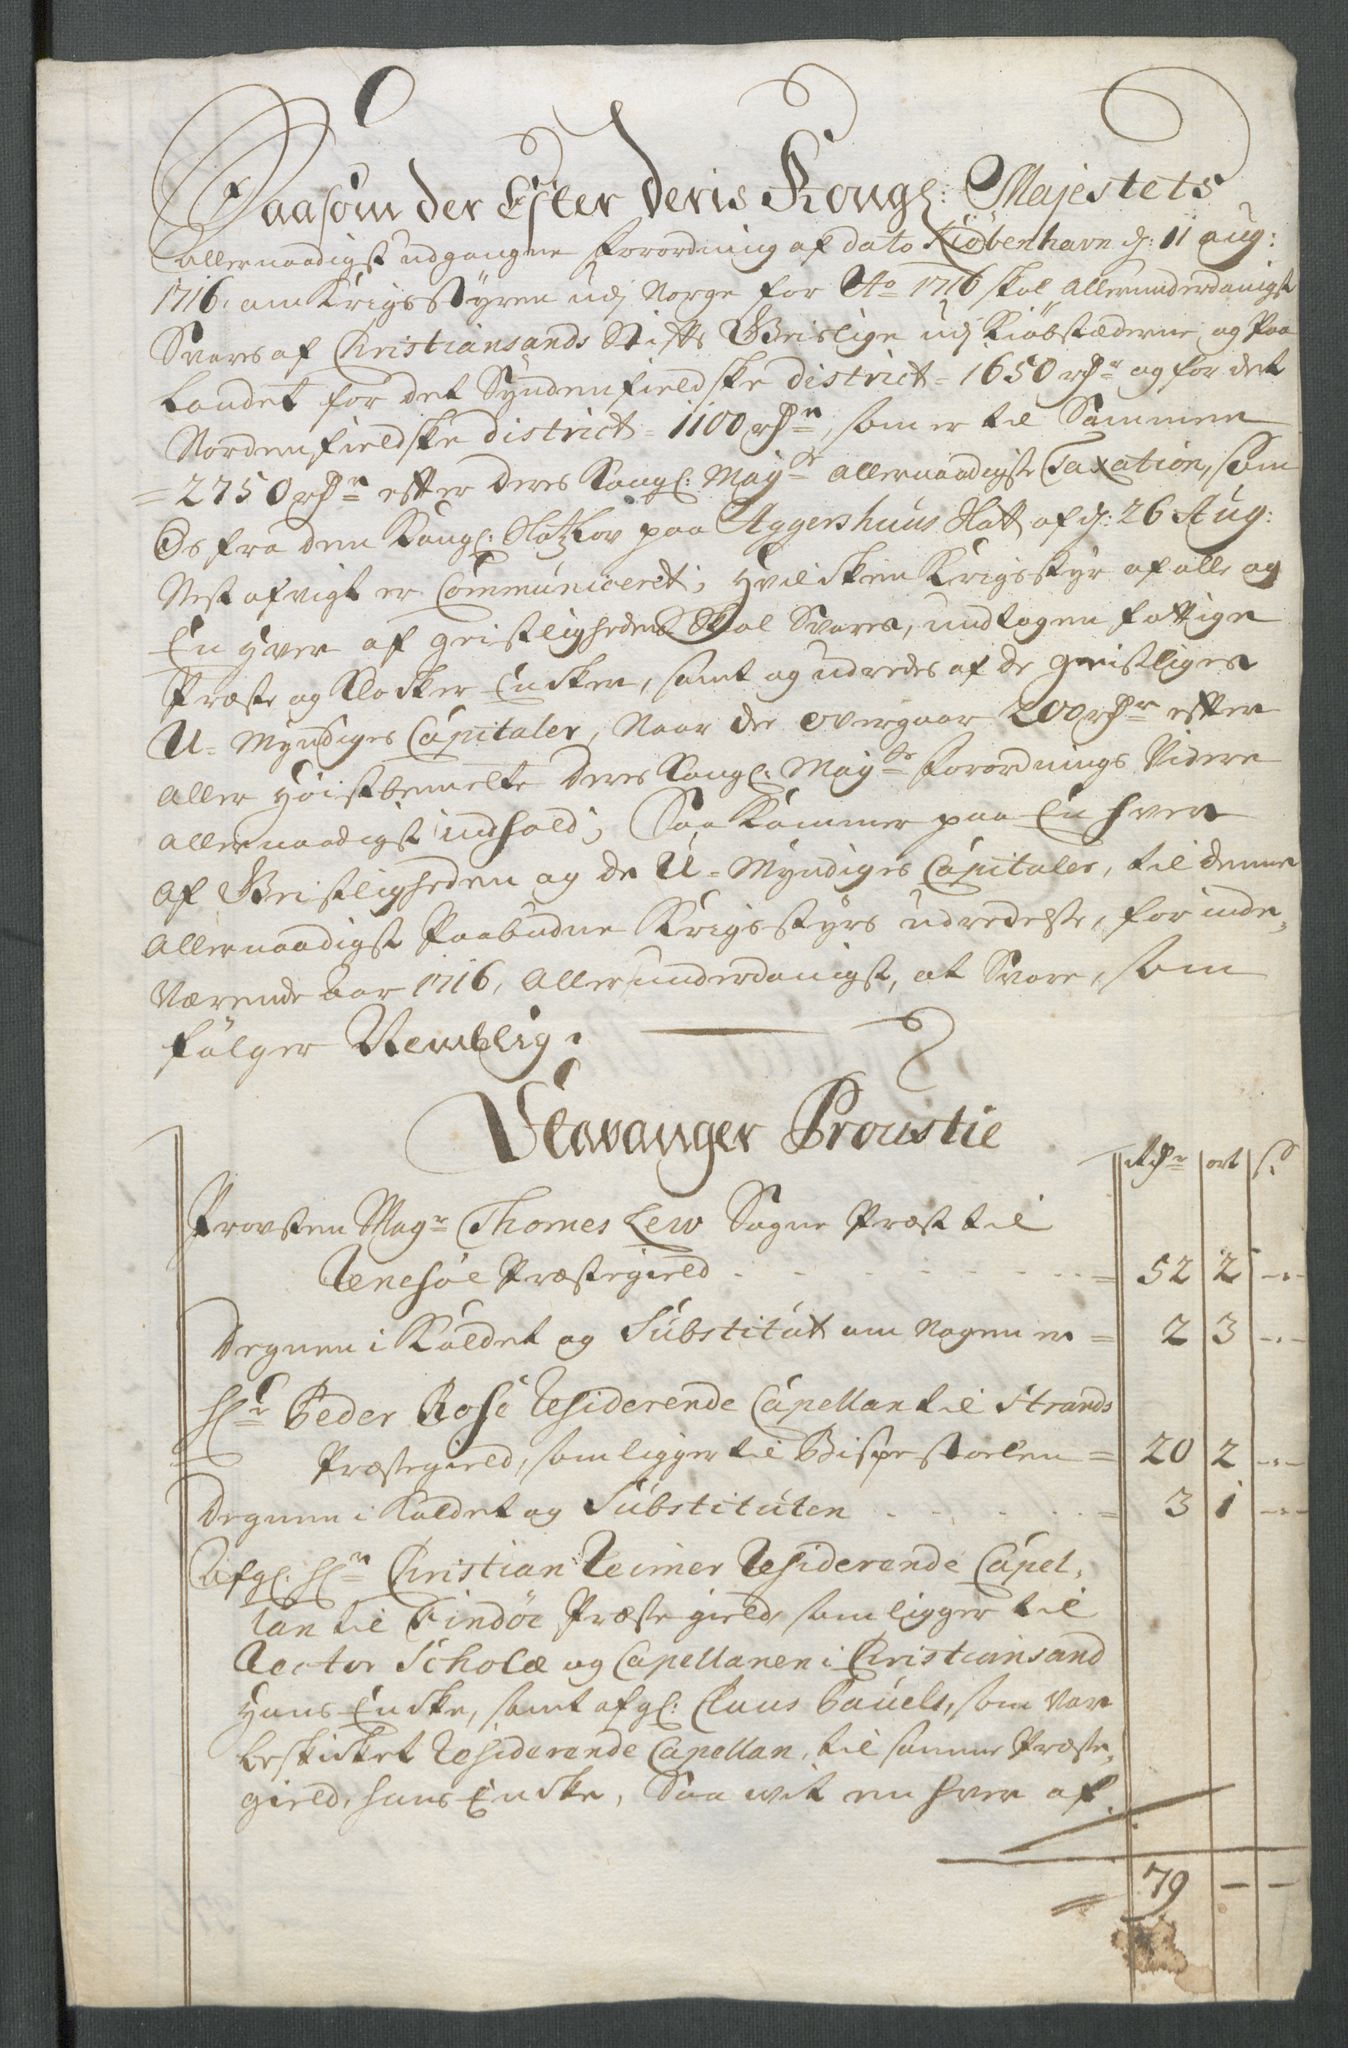 Saasom der Efter deris Kongl: Majestets
Allernaadigst udgangne forordning af dato Kiöbenhavn d: 11 aug:
1716. om Krigsstÿren udj Norge for Ao 1716 skal Allerunderdanigst
Svares af Christiansands Stifts Geislige udj Kiöbstæderne og Paa
Landet for det Syndenfieldske district = 1650 rdr og for det
Nordenfieldske district = 1100 rdr, som er til Sammen
= 2750 rdr efter Deres Kongl: Mayts allernaadigste Taxation, som
Os fra den Kongl: Slotzlov paa Aggershuus Slot af d: 26 Aug:
Nest afvigt er Communiceret; Hvilcken Krigsstyr af alle og
En hver af geistligheden Skal Svares, undtagen fattige
Præste og Klocker Encker, samt og udredes af de geistliges
U-Myndiges Capitaler, Naar de overgaar 200 rdr efter
aller höistbemelte Deres Kongl: Mayts forordnings Videre
allernaadigst indhold; Saa Kommer paa En hver
af Geistligheden og de U-Myndiges Capitaler, til denne
Allernaadigst Paabudne Krigsstyrs udredelse, for inde,
Værende aar 1716, allerunderdanigst, at Svare, som
fölger Nemblig:
Stavanger Proustie
Rdr ort s
Provsten Magr Thomes Lew Sogne Præst til
Rendsöe Præstegield = 52 2 -
Degnen i Kaldet og Substitut om Nogen er = 2 3 -
Hr Peder Rose Residerende Capellan til Strands
Præstegield, som ligger til Bispestoelen = 20 2 -
Degnen i Kaldet og Substituten = 3 1 -
Afgl: Hr Christian Reimer Residerende Capel,
lan til Findöe Præstegield, som ligger til
Rector Scholæ og Capellanen i Christiansand
Hans Encke, samt afgl: Claus Pauels, som var
beskicket Residerende Capellan, til samme Præste,
gield, hans Encke, Saa vit en hver af
= 79 - -